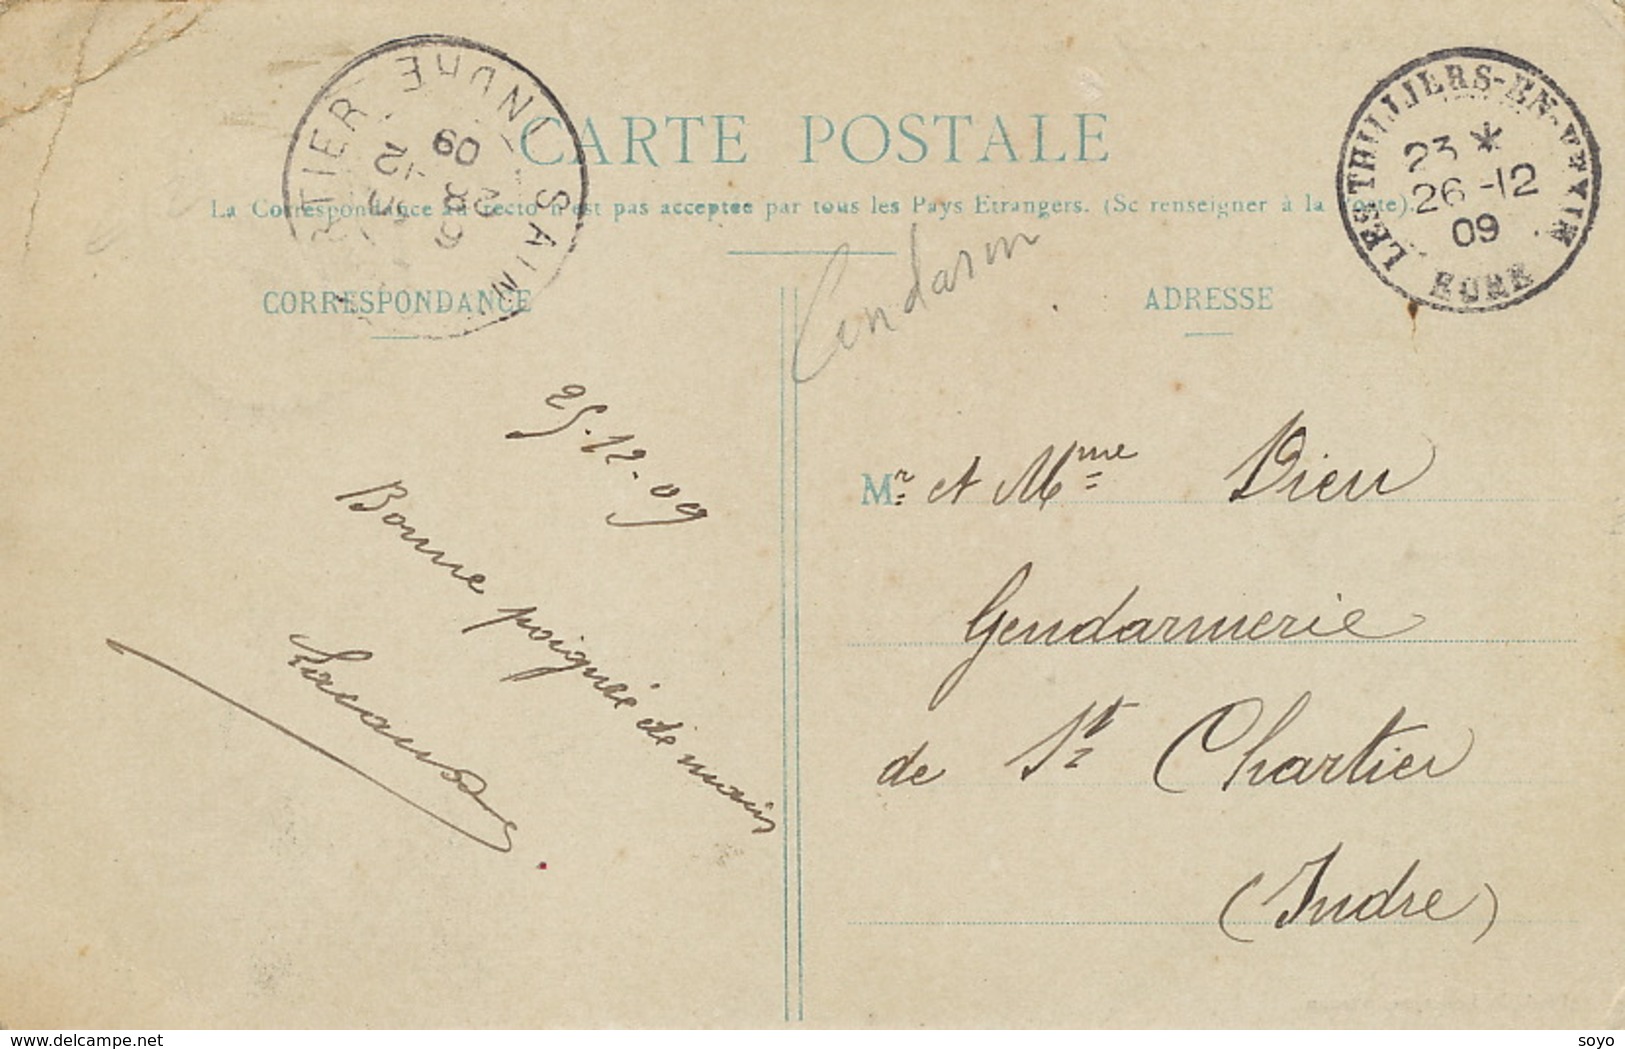 CARTE POSTALE
La Correspondance au recto n'est pas acceptée par tous les Pays Etrangers. (Se renseigner à la Poste).
CORRESPONDANCE
ADRESSE
LES THILLIERS-EN-VEXIN
23 *
26-12
09
EURE
SAINT CHARTIER INDRE
12
09
Gendarm
25-12-09
Bonne poignée de main
Mr et Mme Dieu
Gendarmerie
de St Chartier
(Indre)
delcampe.net
soyo